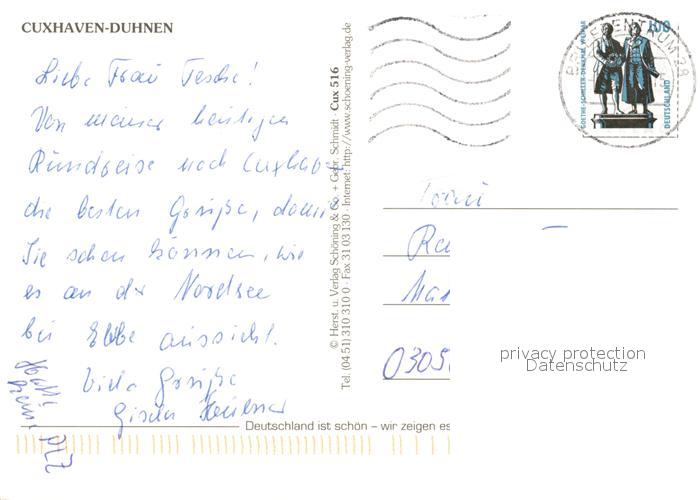 CUXHAVEN-DUHNEN
Liebe Frau Tesche!
Von meiner heutigen
Rundreise nach Cuxhaven
die besten Grüße, damit
Sie sehen können, wie
es an der Nordsee
bei Ebbe aussieht.
Viele Grüße
Gisela
PLZ
© Herst. u. Verlag Schöning & Co. + Gebr. Schmidt · Cux 516
Tel. (04 51) 310 310 0 · Fax 31 03 130 · Internet: http://www.schoening-verlag.de
100
GOETHE-SCHILLER-DENKMAL WEIMAR
DEUTSCHLAND
BRIEFZENTRUM
Frau
0305
privacy protection
Datenschutz
Deutschland ist schön – wir zeigen es